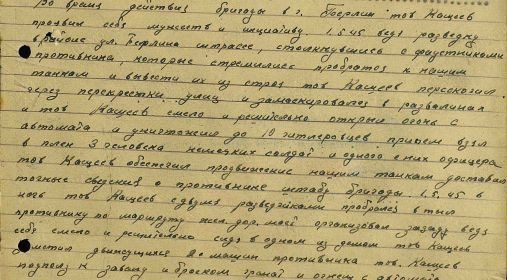 Во время действия бригады в г. Берлин тов Кащеев
проявил себя мужеств. и инициативу. 1.5.45 ведя разведку
в районе ул. Берлина штрассе, столкнувшись с фаустниками
противника, которые стремились пробратся к нашим
танкам и вывести их из строя тов Кащеев перескочил
через перекрестки улиц и замаскировался в развалинах
и тов Кащеев смело и решительно открыл огонь с
автомата и уничтожил до 10 гитлеровцев. причем взял
в плен 3 человека немецких солдат и одного с них офицера
тов Кащеев обеспечил продвижение нашим танкам доставал
точные сведения о противнике штабу бригады. 1.5.45 в
ночь тов Кащеев с двумя разведчиками пробрался в тыл
противнику по маршруту жел. дор. мост организовал засаду ведя
себя смело и решительно сидя в одном из домов тов Кащеев
заметил движущихся 2е машин противника тов. Кащеев
подполз к завалу и броском гранат и огнем с автомата